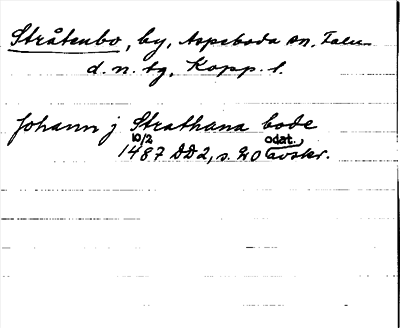 Stråtenbo, by, Aspeboda sn, Falu
d. n. tg, Kopp. l.
Johann j Strathana bode
10/2 odat.
1487 DD2, s. 20 avskr.